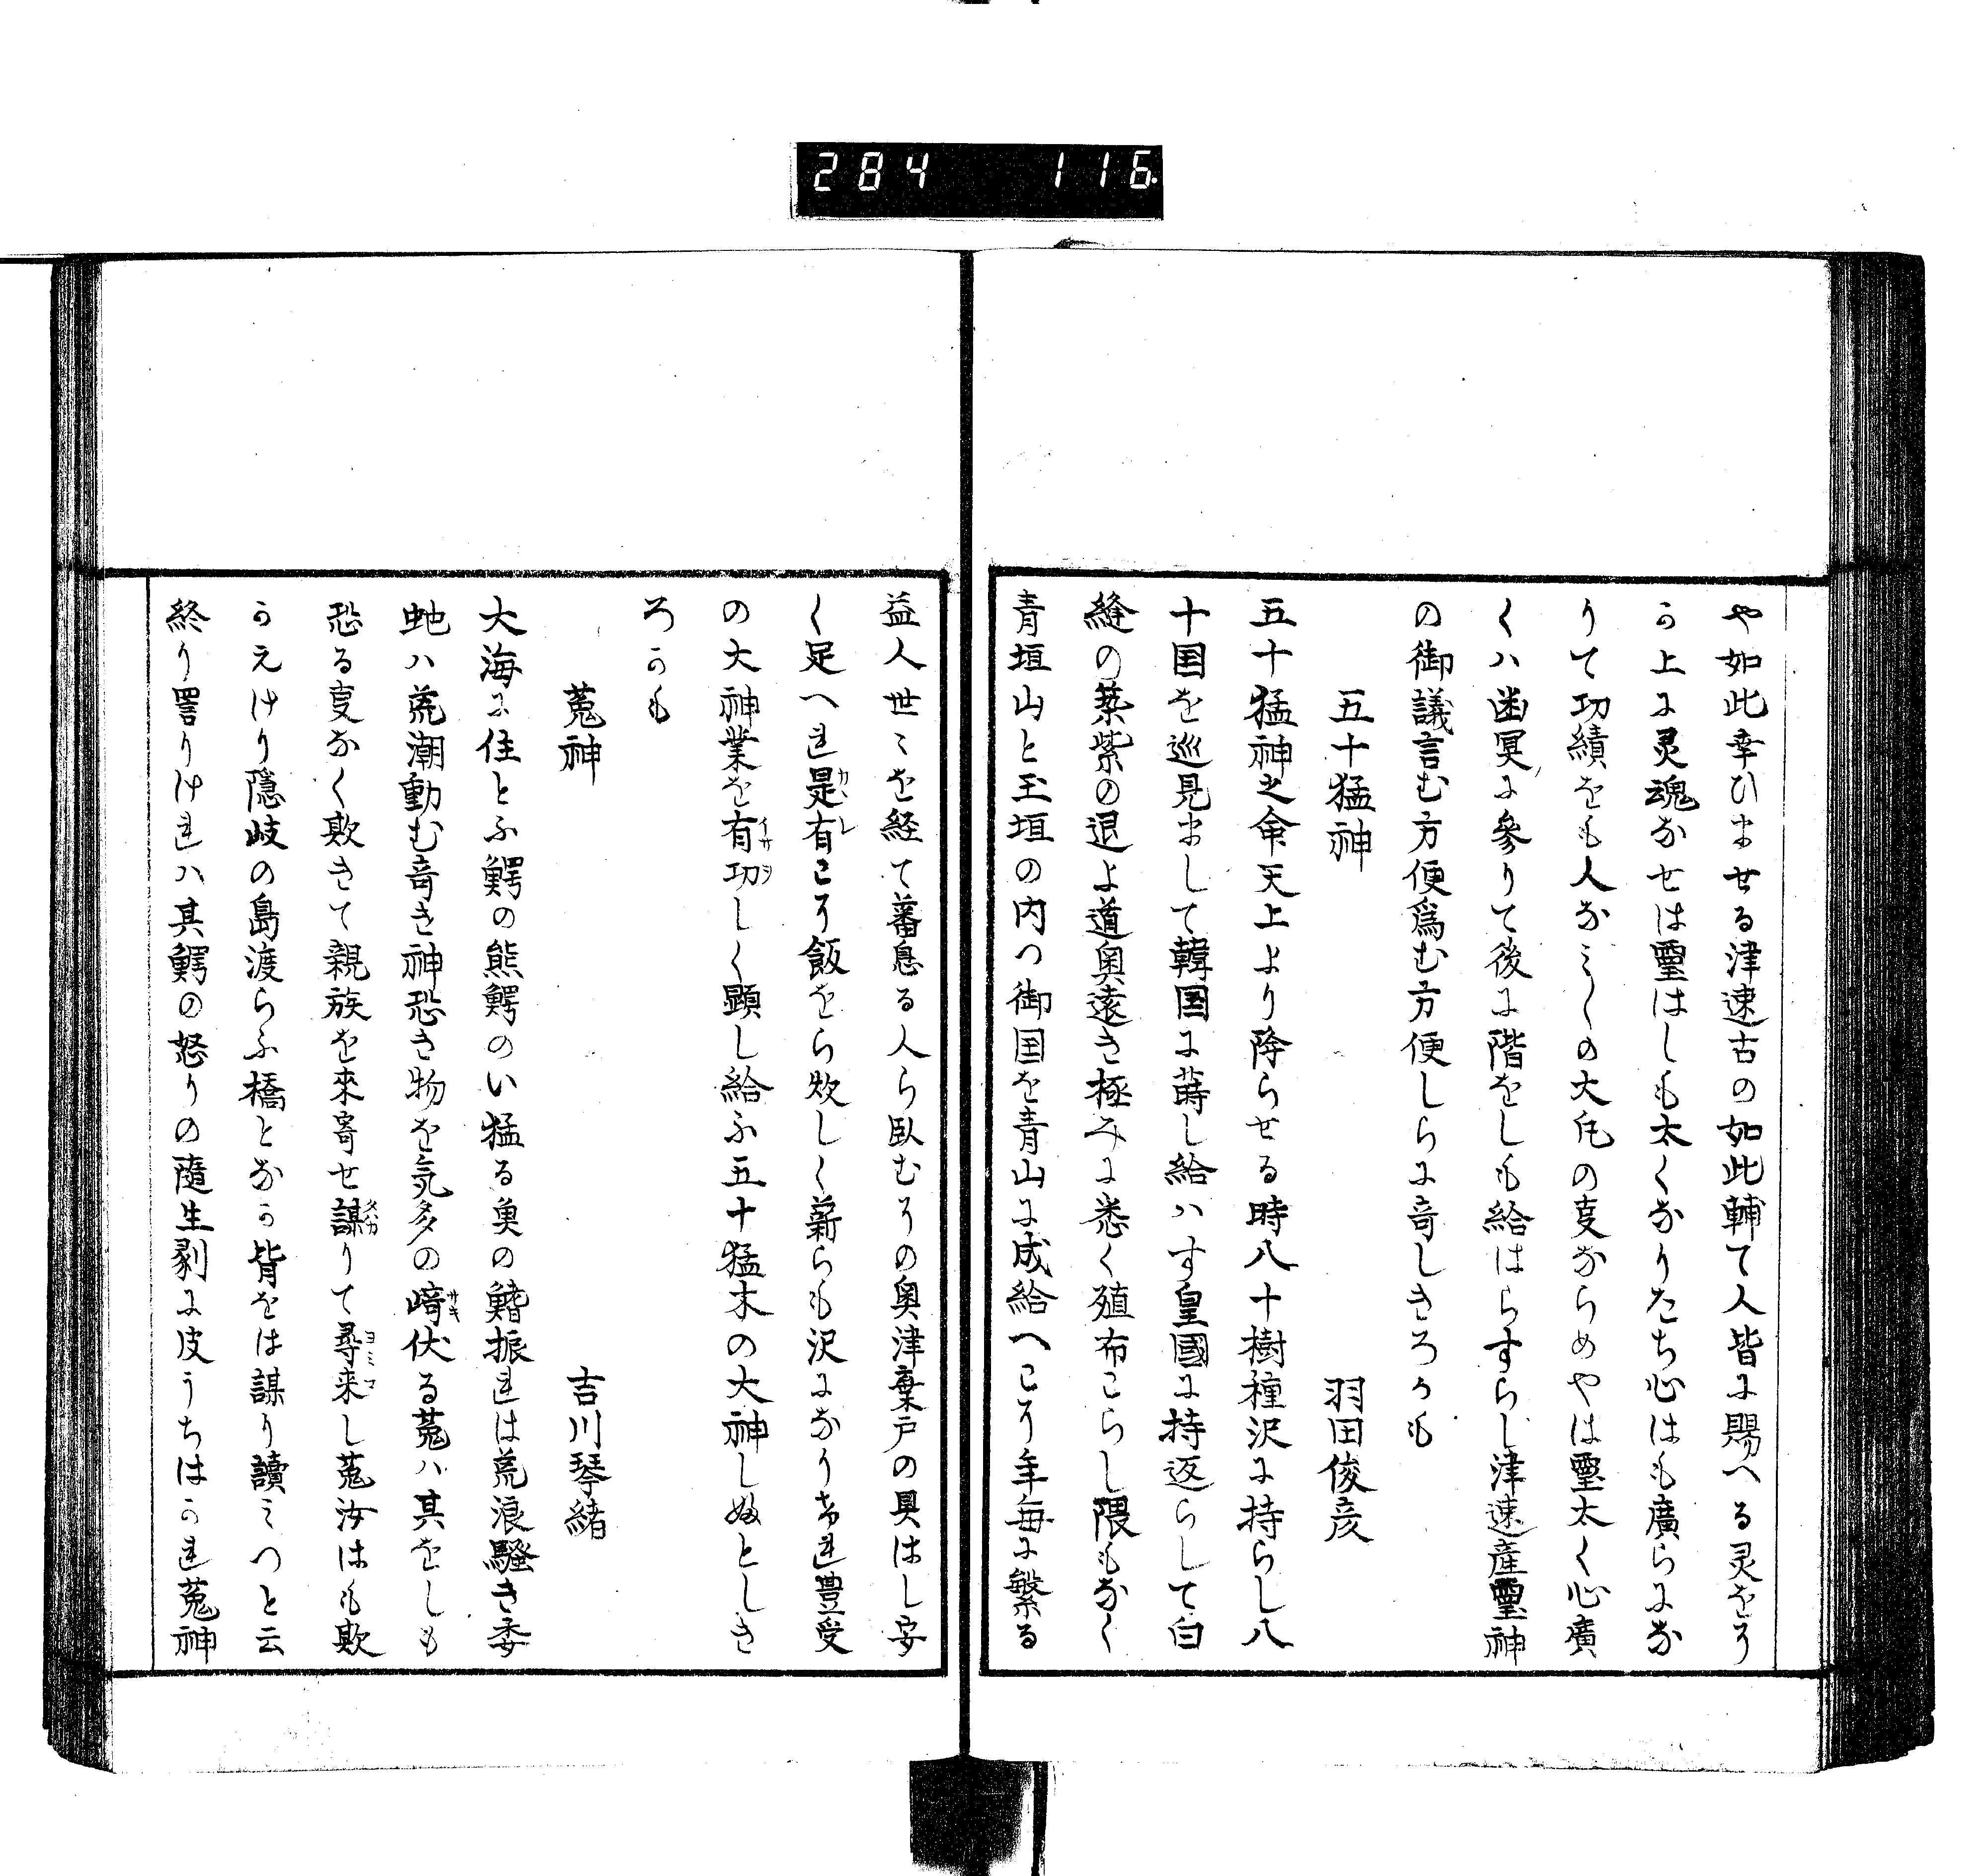 284 116
や如此幸ひませる津速古の如此輔て人皆に賜へる灵をそ
か上に灵魂なせは霊はしも太くなりたち心はも廣らにな
りて功績をも人なみ〱の大凡の叓ならめやは霊太く心廣
くハ幽冥に参りて後に階をしも給はらすらし津速産霊神
の御議言む方便爲む方便しらに竒しきろかも
五十猛神 羽田俊彦
五十猛神之命天上より降らせる時八十樹種沢に持らし八
十国を巡見まして韓国に蒔し給ハす皇國に持返らして白
縫の築紫の退よ道奥遠き極みに悉く殖布こらし隈もなく
青垣山と玉垣の内つ御国を青山に成給へこそ年毎に繁る
益人世ゝを経て蕃息る人ら臥むそのの奥津棄戸の具はし安
く足へれ是有こそ飯をら炊しく薪らも沢になりけれ豊受
の大神業を有功しく顕し給ふ五十猛木の大神しぬとしき
ろかも
菟神 吉川琴緒
大海に住とふ鰐の熊鰐のい猛る魚の鰭振れは荒浪騒き委
虵ハ荒潮動む竒き神恐き物を気多の﨑伏る菟ハ其をしも
恐る叓なく欺きて親族を來寄せ謀りて尋来し菟汝はも欺
かえけり隠岐の島渡らふ橋となか背をは謀り讀みつと云
終り詈りけれハ其鰐の怒りの隨生剥に皮うちはかれ菟神